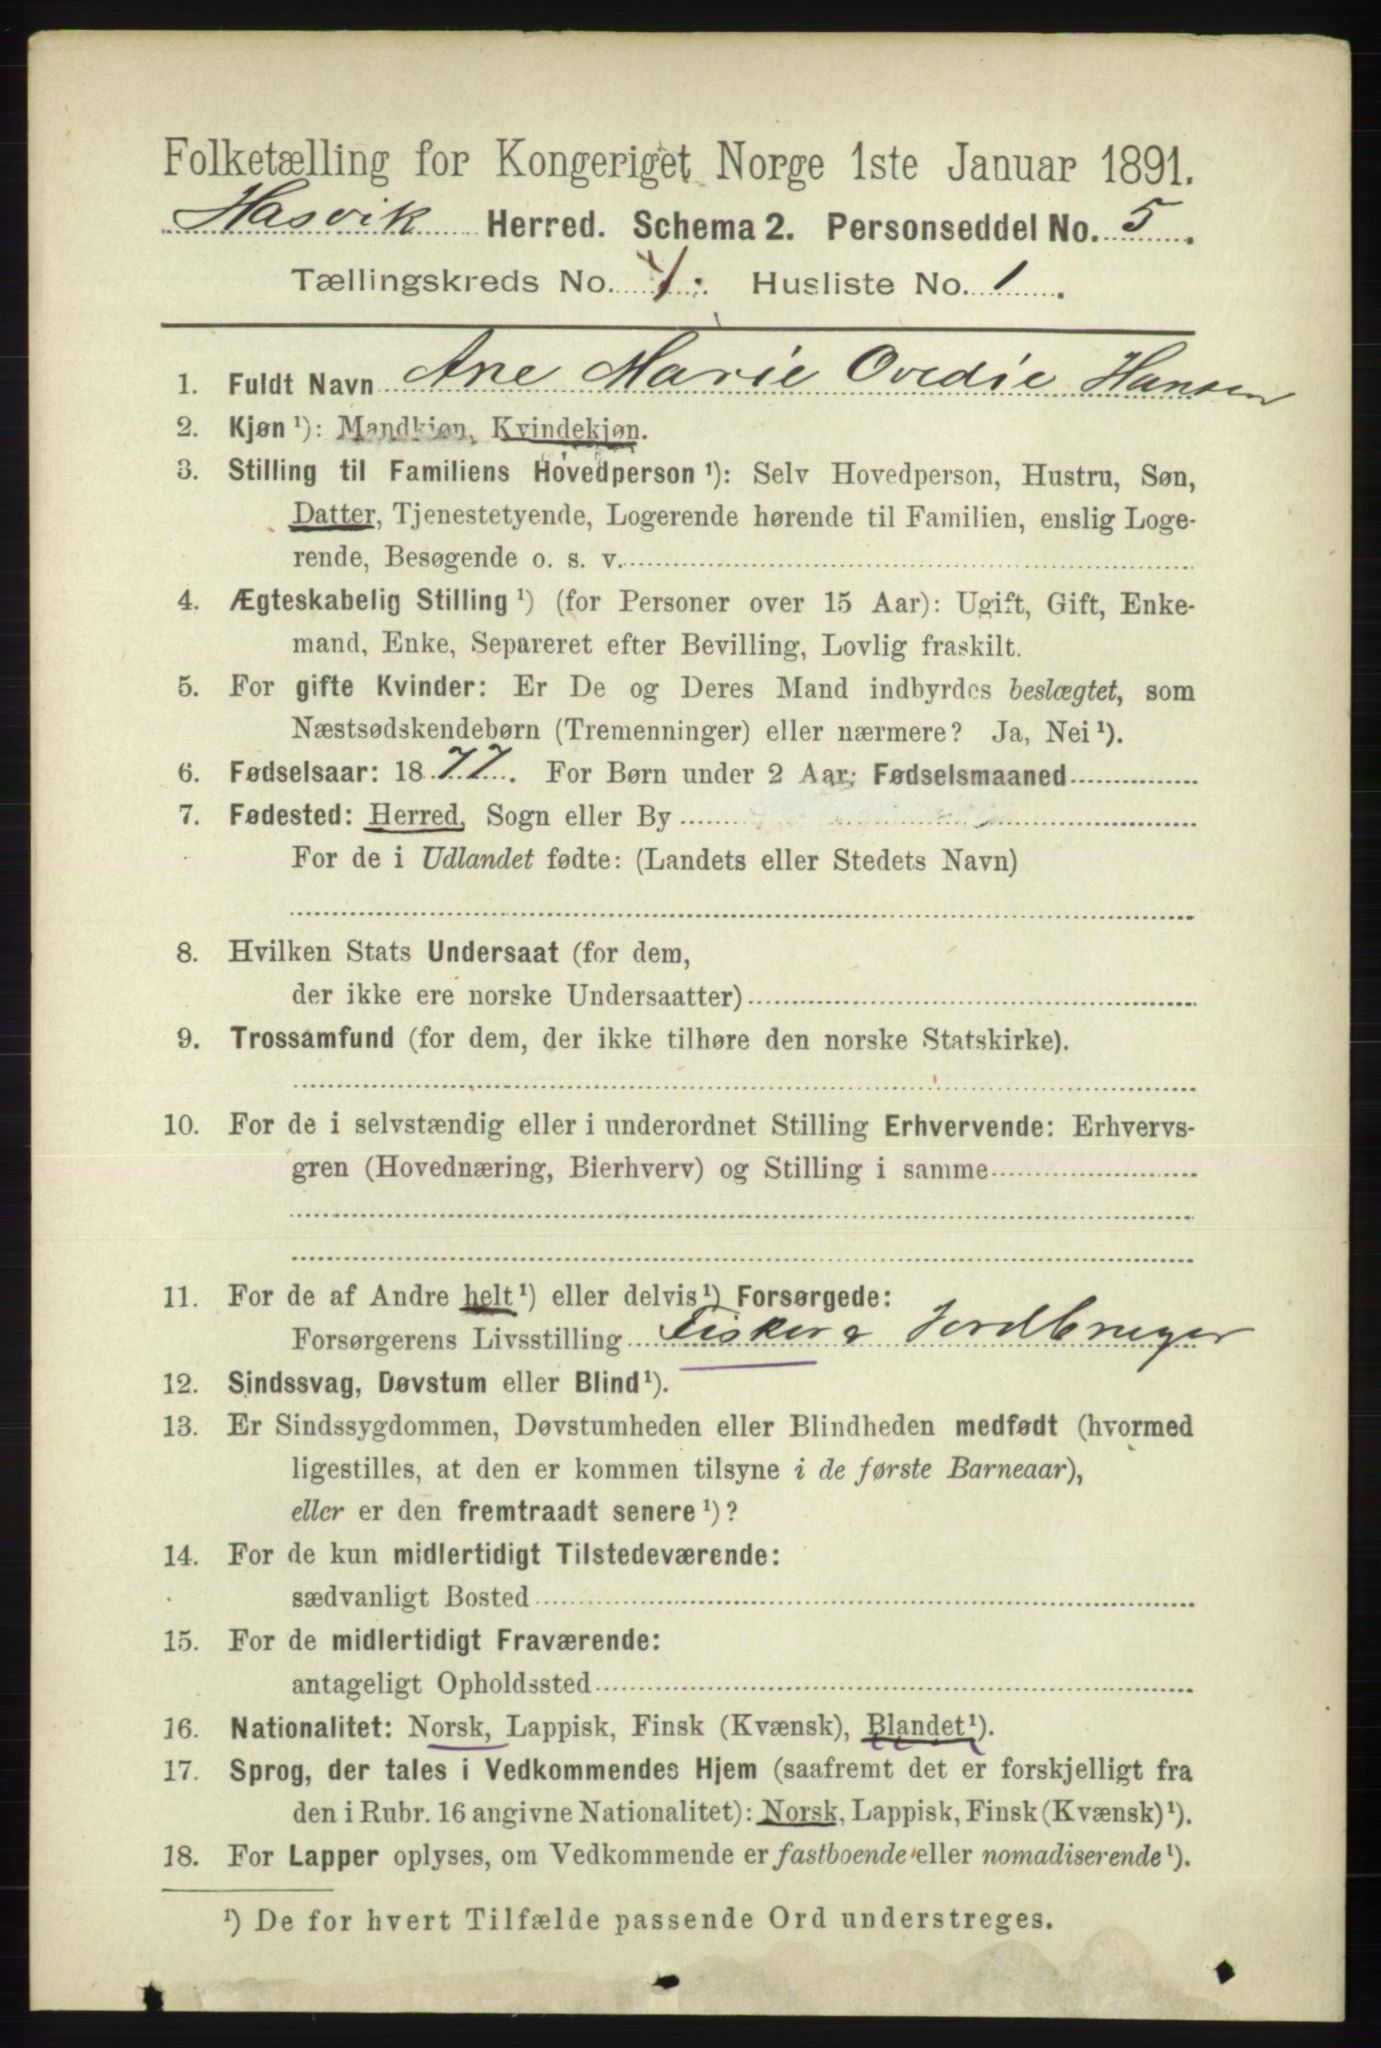 Folketælling for Kongeriget Norge 1ste Januar 1891.
Hasvik Herred. Schema 2. Personseddel No. 5.
Tællingskreds No. 1. Husliste No. 1.
1. Fuldt Navn Ane Marie Ovedie Hansen
2. Kjøn ¹): Mandkjøn, Kvindekjøn.
3. Stilling til Familiens Hovedperson ¹): Selv Hovedperson, Hustru, Søn,
Datter, Tjenestetyende, Logerende hørende til Familien, enslig Loge-
rende, Besøgende o. s. v.
4. Ægteskabelig Stilling ¹) (for Personer over 15 Aar): Ugift, Gift, Enke-
mand, Enke, Separeret efter Bevilling, Lovlig fraskilt.
5. For gifte Kvinder: Er De og Deres Mand indbyrdes beslægtet, som
Næstsødskendebørn (Tremenninger) eller nærmere? Ja, Nei ¹).
6. Fødselsaar: 1877. For Børn under 2 Aar: Fødselsmaaned
7. Fødested: Herred, Sogn eller By
For de i Udlandet fødte: (Landets eller Stedets Navn)
8. Hvilken Stats Undersaat (for dem,
der ikke ere norske Undersaatter)
9. Trossamfund (for dem, der ikke tilhøre den norske Statskirke).
10. For de i selvstændig eller i underordnet Stilling Erhvervende: Erhvervs-
gren (Hovednæring, Bierhverv) og Stilling i samme
11. For de af Andre helt ¹) eller delvis ¹) Forsørgede:
Forsørgerens Livsstilling Fisker & Jordbruger
12. Sindssvag, Døvstum eller Blind ¹).
13. Er Sindssygdommen, Døvstumheden eller Blindheden medfødt (hvormed
ligestilles, at den er kommen tilsyne i de første Barneaar),
eller er den fremtraadt senere ¹)?
14. For de kun midlertidigt Tilstedeværende:
sædvanligt Bosted
15. For de midlertidigt Fraværende:
antageligt Opholdssted
16. Nationalitet: Norsk, Lappisk, Finsk (Kvænsk), Blandet ¹).
17. Sprog, der tales i Vedkommendes Hjem (saafremt det er forskjelligt fra
den i Rubr. 16 angivne Nationalitet): Norsk, Lappisk, Finsk (Kvænsk) ¹).
18. For Lapper oplyses, om Vedkommende er fastboende eller nomadiserende ¹).
¹) De for hvert Tilfælde passende Ord understreges.